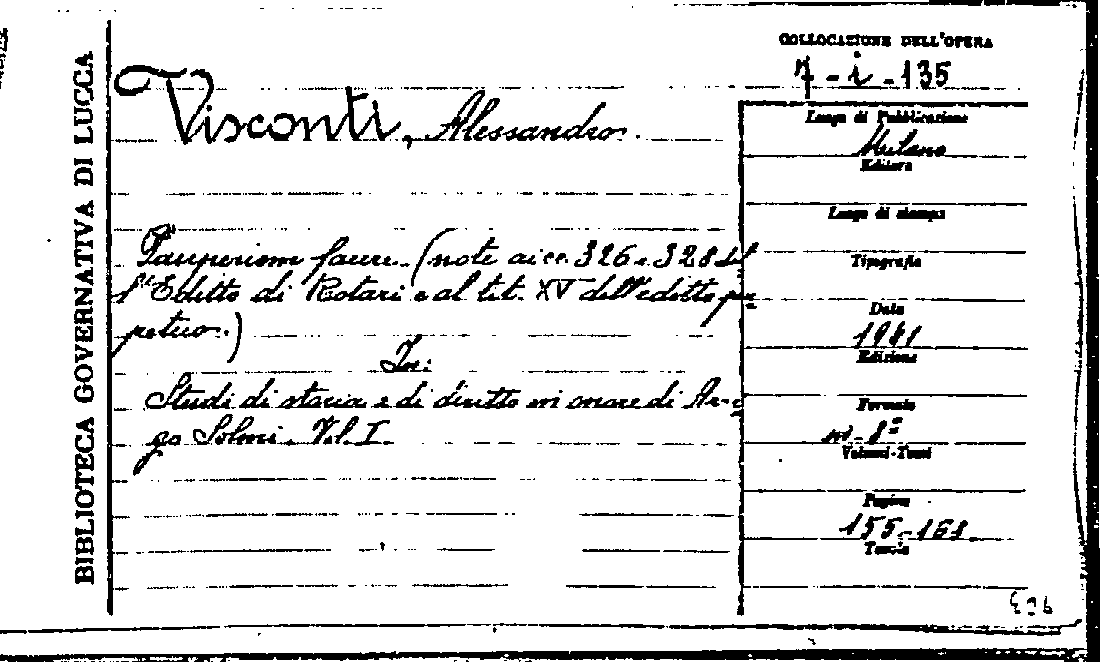 BIBLIOTECA GOVERNATIVA DI LUCCA
COLLOCAZIONE DELL'OPERA
7 - i - 135
Visconti, Alessandro.
Luogo di Pubblicazione
Milano
Editore
Luogo di stampa
Tipografia
Data
1941
Edizione
Formato
in - 8º
Volumi-Tomi
Pagine
155-168
Tavole
Pauperiem facere. (note ai cc. 326 e 328 del
l'Editto di Rotari e al tit. XV dell'editto per
petuo.)
In:
Studi di storia e di diritto in onore di Ar-
go Solmi. Vol. I.